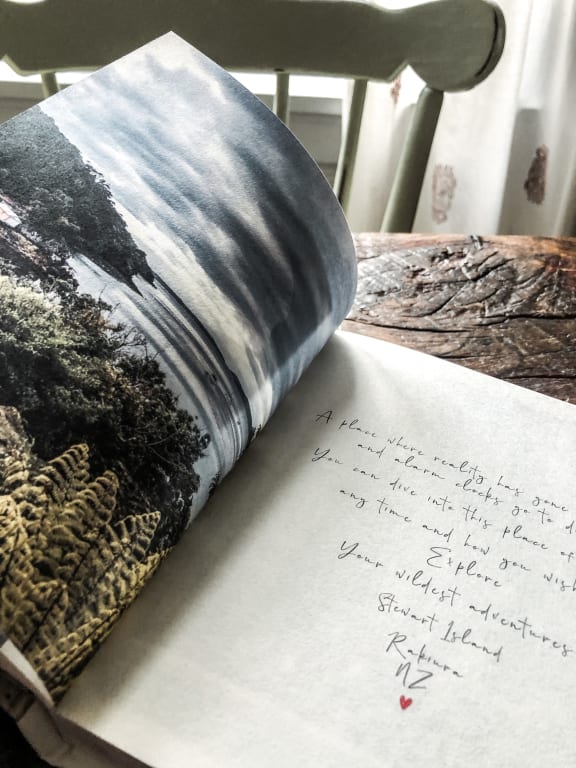 A place where reality has gone
and alarm clocks go to
You can dive into this place of
any time and how you wish
Explore
Your wildest adventures
Stewart Island
Rakiura
NZ